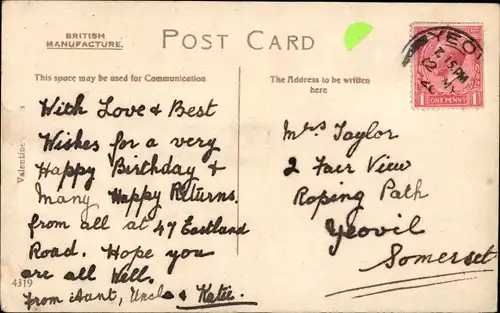 BRITISH
MANUFACTURE.
POST CARD
This space may be used for Communication
The Address to be written
here
With Love & Best
Wishes for a very
Happy Birthday &
Many Happy Returns.
from all at 47 Eastland
Road. Hope you
are all Well.
from Aunt, Uncle & Katie.
Mrs Taylor
2 Fair View
Roping Path
Yeovil
Somerset
ONE PENNY
Valentine
4319